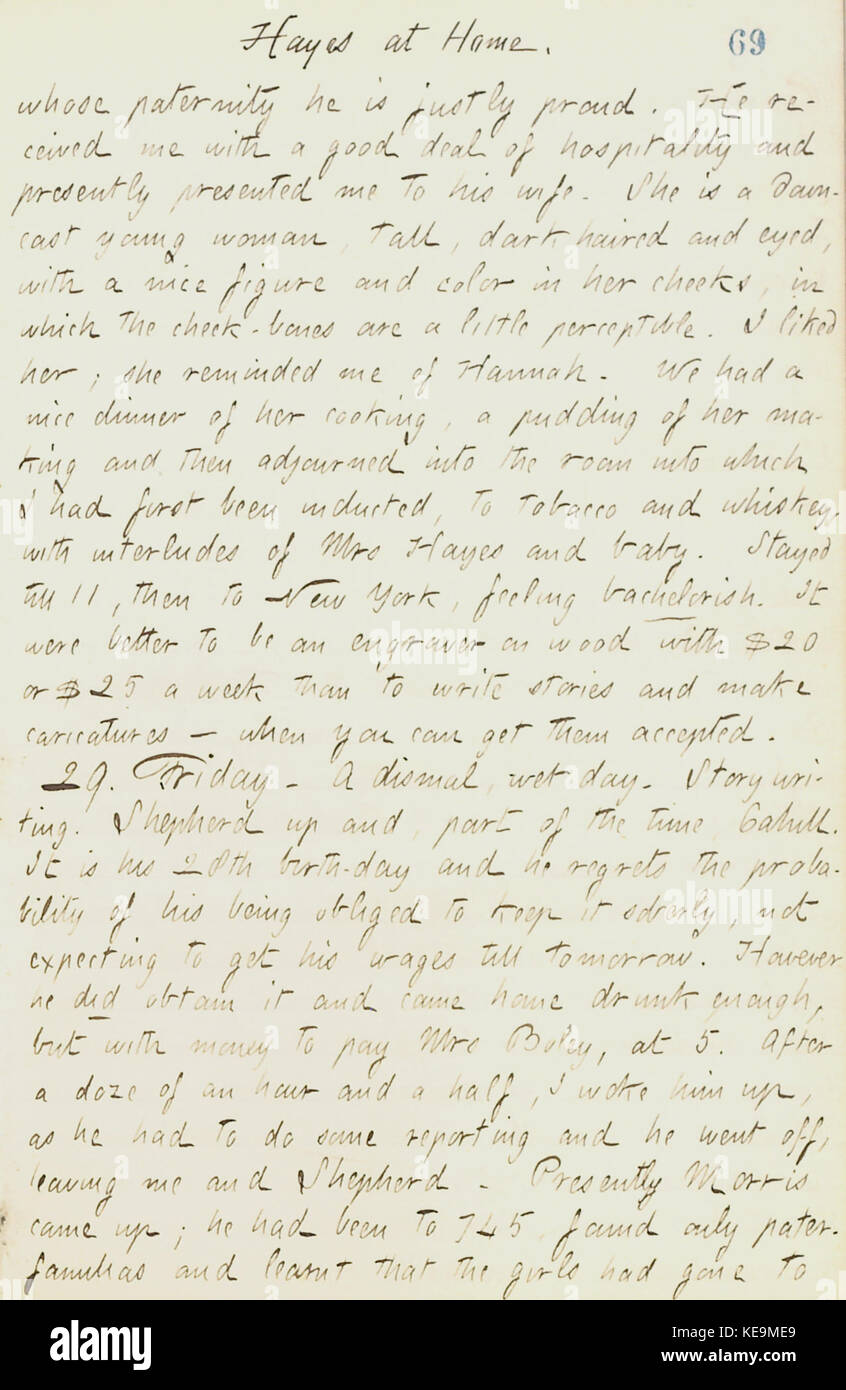 Hayes at Home. 69
whose paternity he is justly proud. He re-
ceived me with a good deal of hospitality and
presently presented me to his wife. She is a down-
cast young woman, tall, dark haired and eyed,
with a nice figure and color in her cheeks, in
which the cheek-bones are a little perceptible. I liked
her; she reminded me of Hannah. We had a
nice dinner of her cooking, a pudding of her ma-
king and then adjourned into the room into which
I had first been inducted, to tobacco and whiskey,
with interludes of Mrs Hayes and baby. Stayed
till 11, then to New York, feeling bachelorish. It
were better to be an engraver on wood with $20
or $25 a week than to write stories and make
caricatures — when you can get them accepted.
29. Friday. A dismal, wet day. Story wri-
ting. Shepherd up and, part of the time, Cahill.
It is his 28th birth-day and he regrets the proba-
bility of his being obliged to keep it soberly, not
expecting to get his wages till tomorrow. However
he did obtain it and came home drunk enough,
but with money to pay Mrs Boley, at 5. After
a doze of an hour and a half, I woke him up,
as he had to do some reporting and he went off,
leaving me and Shepherd. Presently Morris
came up; he had been to 745, found only pater-
familias and learnt that the girls had gone to
alamy
alamy
alamy
alamy
alamy
Image ID: KE9ME9
www.alamy.com